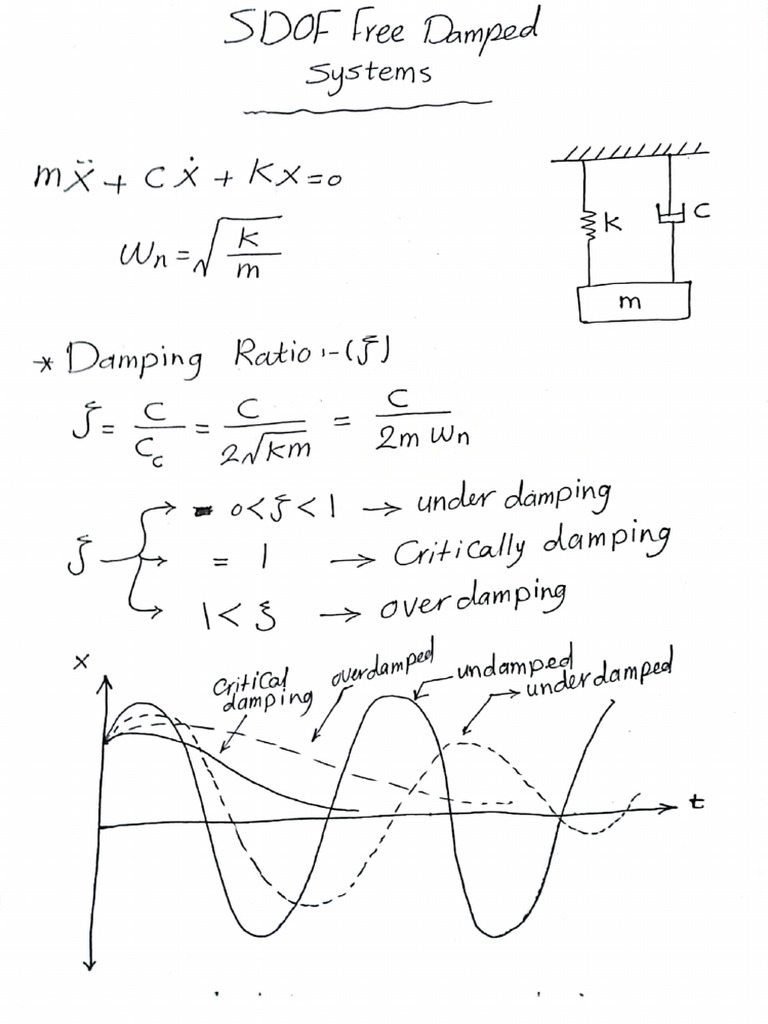 SDOF Free Damped
Systems
mẍ + cẋ + kx = 0
ωn = √(k/m)
k
c
m
* Damping Ratio :- (ζ)
ζ = C/Cc = C/(2√km) = C/(2m ωn)
0 < ζ < 1 → under damping
ζ → = 1 → Critically damping
1 < ξ → over damping
x
critical
damping
overdamped
undamped
→ underdamped
t